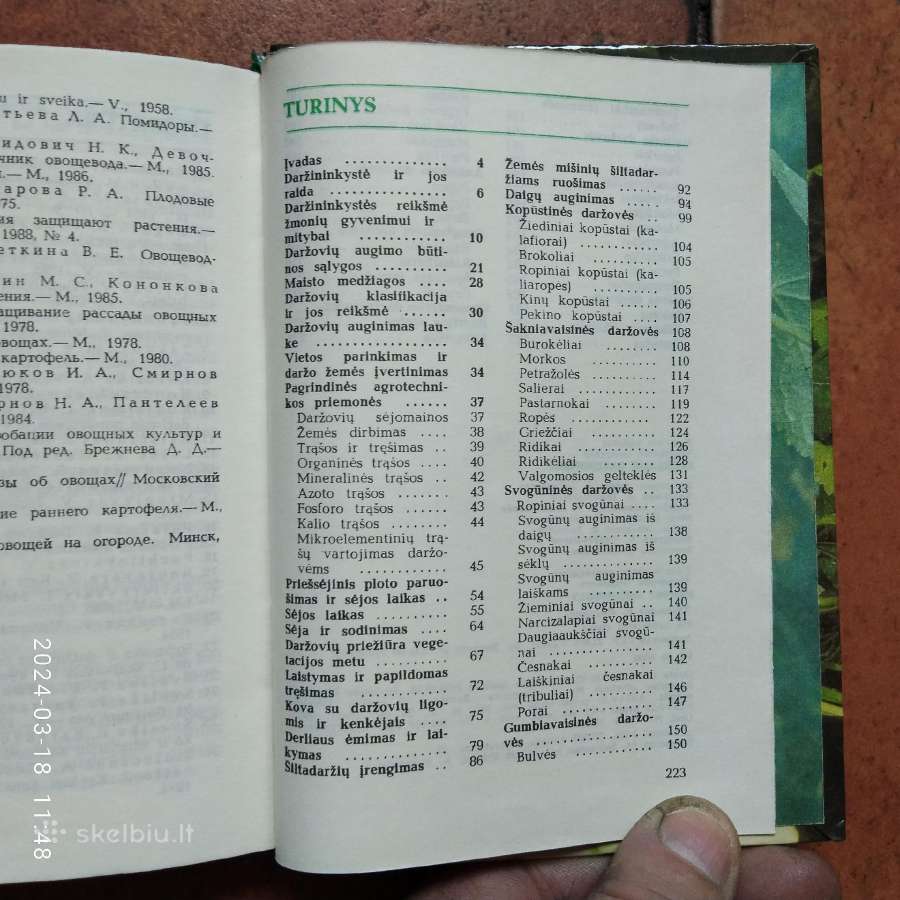 u ir sveika.— V., 1958.
тьева Л. А. Помидоры.—
идович Н. К., Девоч-
чник овощевода.— М., 1985.
.— М., 1986.
арова Р. А. Плодовые
75.
ия защищают растения.—
1988, № 4.
еткина В. Е. Овощевод-
ин М. С., Кононкова
ения.— М., 1985.
ащивание рассады овощных
1978.
овощах.— М., 1978.
картофель.— М., 1980.
юков И. А., Смирнов
1978.
рнов Н. А., Пантелеев
1984.
робации овощных культур и
Под ред. Брежнева Д. Д.—
зы об овощах// Московский
ие раннего картофеля.— М.,
овощей на огороде. Минск,
TURINYS
Įvadas ............. 4
Daržininkystė ir jos
raida ............... 6
Daržininkystės reikšmė
žmonių gyvenimui ir
mitybai ............ 10
Daržovių augimo būti-
nos sąlygos .......... 21
Maisto medžiagos .... 28
Daržovių klasifikacija
ir jos reikšmė ...... 30
Daržovių auginimas lau-
ke ................. 34
Vietos parinkimas ir
daržo žemės įvertinimas 34
Pagrindinės agrotechni-
kos priemonės ...... 37
Daržovių sėjomainos 37
Žemės dirbimas .... 38
Trąšos ir tręšimas .. 39
Organinės trąšos .... 40
Mineralinės trąšos .. 42
Azoto trąšos ....... 43
Fosforo trąšos ...... 43
Kalio trąšos ........ 44
Mikroelementinių trą-
šų vartojimas daržo-
vėms ............ 45
Priešsėjinis ploto paruo-
šimas ir sėjos laikas .. 54
Sėjos laikas ......... 55
Sėja ir sodinimas .... 64
Daržovių priežiūra vege-
tacijos metu .......... 67
Laistymas ir papildomas
tręšimas ............ 72
Kova su daržovių ligo-
mis ir kenkėjais .... 75
Derliaus ėmimas ir lai-
kymas .............. 79
Šiltadaržių įrengimas .. 86
Žemės mišinių šiltadar-
žiams ruošimas ...... 92
Daigų auginimas ..... 94
Kopūstinės daržovės .. 99
Žiediniai kopūstai (ka-
lafiorai) ........... 104
Brokoliai ........... 105
Ropiniai kopūstai (ka-
liaropės) ........... 105
Kinų kopūstai ...... 106
Pekino kopūstai .... 107
Šakniavaisinės daržovės 108
Burokėliai ........ 108
Morkos .......... 110
Petražolės ........ 114
Salierai ........... 117
Pastarnokai ....... 119
Ropės ............ 122
Griežčiai .......... 124
Ridikai ........... 126
Ridikėliai ......... 128
Valgomosios geltėklės 131
Svogūninės daržovės .. 133
Ropiniai svogūnai .... 133
Svogūnų auginimas iš
daigų ............ 138
Svogūnų auginimas iš
sėklų .............. 139
Svogūnų auginimas
laiškams .......... 139
Žieminiai svogūnai .. 140
Narcizalapiai svogūnai 141
Daugiaaukščiai svogū-
nai ................ 141
Česnakai .......... 142
Laiškiniai česnakai
(tribuliai) .......... 146
Porai .............. 147
Gumbiavaisinės daržo-
vės ................ 150
Bulvės ............ 150
223
2024-03-18 11:48
skelbiu.lt